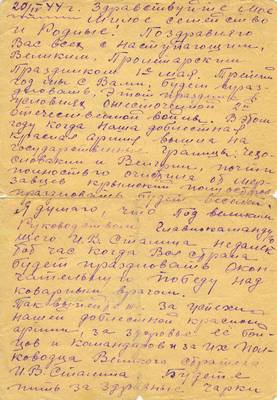 20/IV 44 г. Здравствуйте мое
милое семейство
и Родные! Поздравляю
Вас всех с наступающим
Великим, Пролетарским
Праздником 1е мая. Третий
Год мы с Вами будем празд
новать этот праздник в
условиях ожесточенной
Отечественной войны. В этом
году когда наша доблестная
Красная армия вышла на
государственную границу Чехо
словакии
полностью очистила от мер
завцев крымский полуостров
праздновать будет веселей.
Я думаю, что под великим
руководством Главнокомандую
щего И.В. Сталина недалек
тот час когда Вся страна
будет праздновать окон
чательную победу над
коварным врагом.
Так выпьем же за успехи
нашей доблестной красной
армии, за здоровье ее бой
цов и командиров и за их Пол
ководца Великого
И.В. Сталина. Будете
пить за здравие чарки